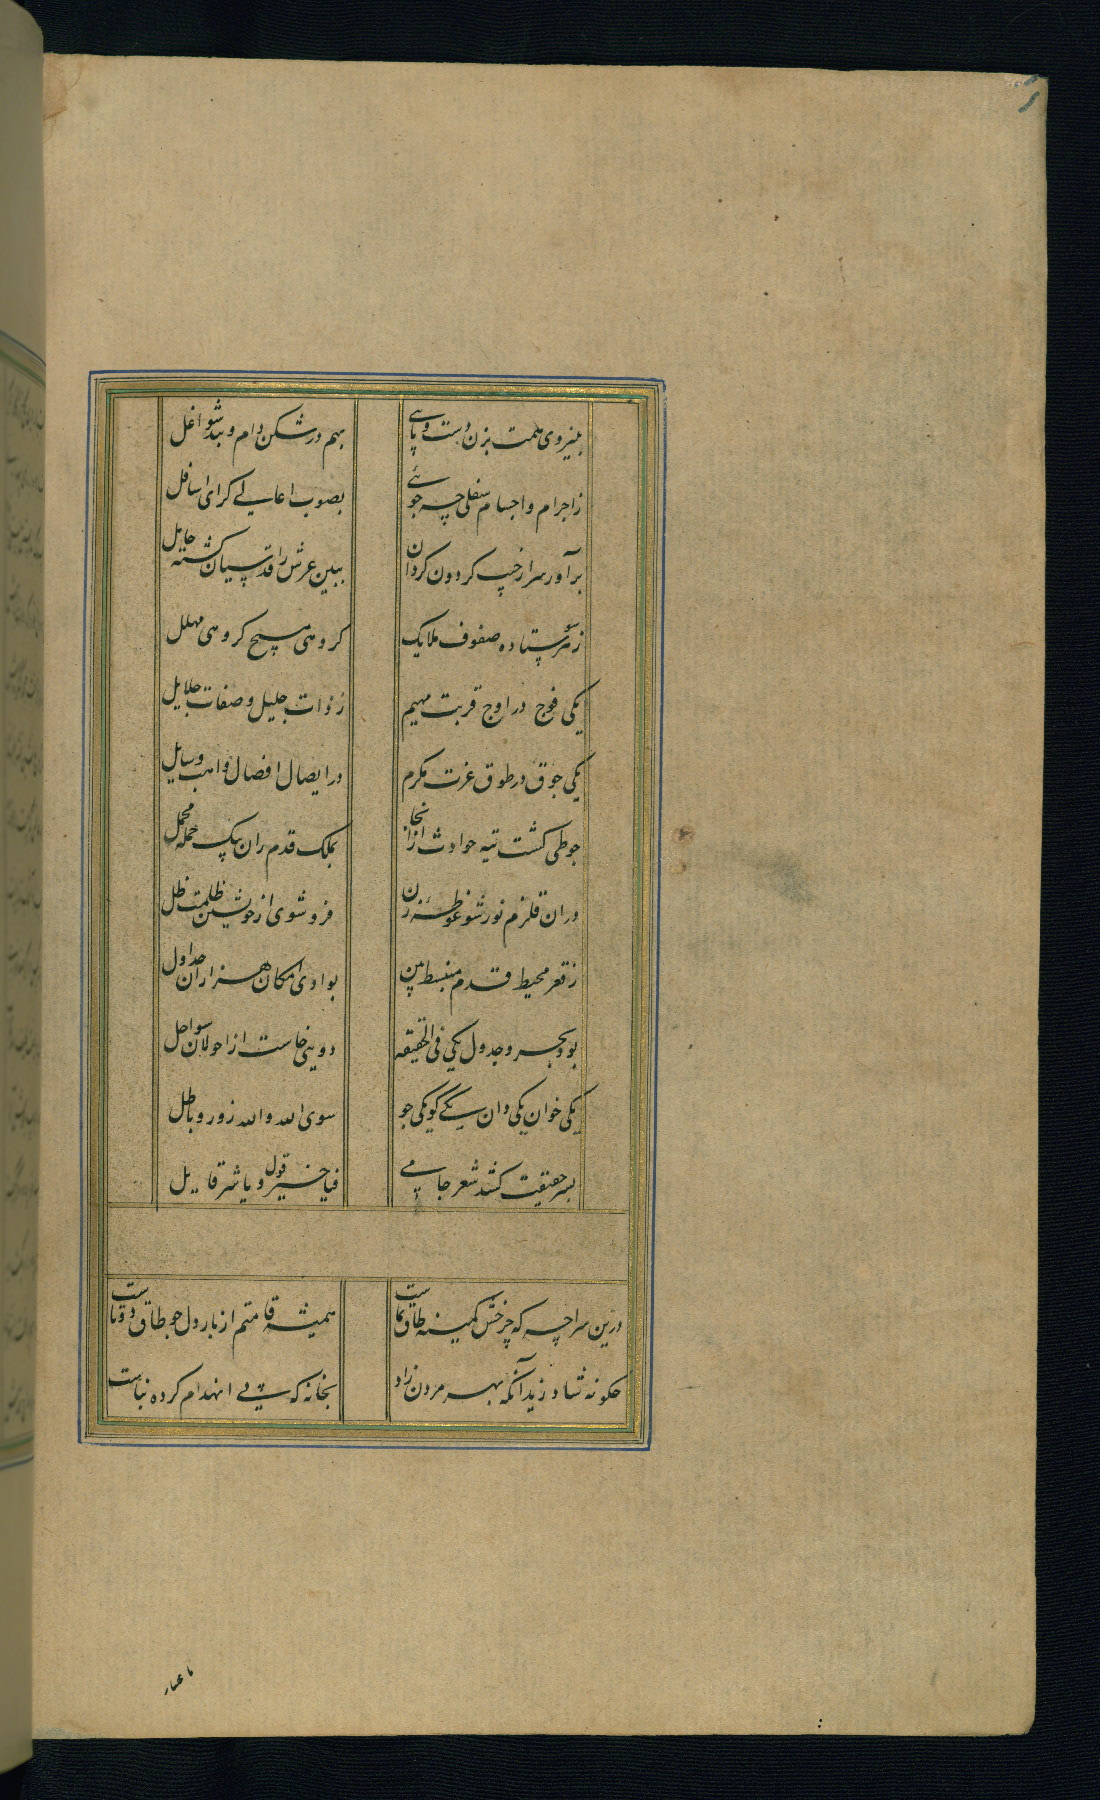 بنیروی همت بزن دست و پایی بهم در شکن دام و بند شواغل
ز اجرام و اجسام سفلی چه جوئی بصوب اعالی گرای اسافل
برآور سر از جیب کردون کردان ببین عرش را قدسیان کشته حامل
ز هر سو ستاده صفوف ملایک کروهی مسبح کروهی مهلل
یکی فوج در اوج قربت مهیم ز ذات جلیل و صفات جلایل
یکی جوق در طوق عزت مکرم در ایصال افضال واهب وسایل
جو طی کشت تیه حوادث از انجا بملک قدم ران بیک حمله محمل
در ان قلزم نور شو غوطه زن فرو شوی از خویشتن ظلمت ظل
ز قعر محیط قدم منبسط بین بوادی امکان هزاران جداول
بود بحر و جدول یکی فی الحقیقه دوینی خاست از احولان سواحل
یکی خوان یکی دان یکی گو یکی جو سوی الله والله زور و باطل
بسر حقیقت کشد شعر جامی فیا خیر قول و یا شر قایل
درین سراچه که چرخش کمینه طاق نماست همیشه قامتم از بار دل جو طاق دوتاست
حکونه شاد زید آنکه بهر مردن زاد بخانه که پی انهدام کرده بناست